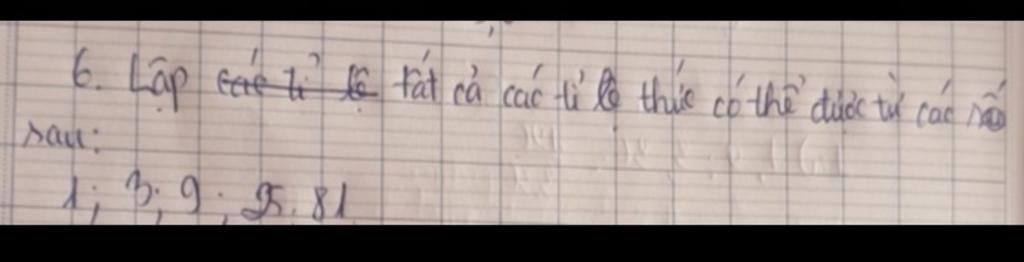 6. Lập các tỉ lệ tất cả các tỉ lệ thức có thể được từ các số
sau:
1; 3; 9; 25. 81